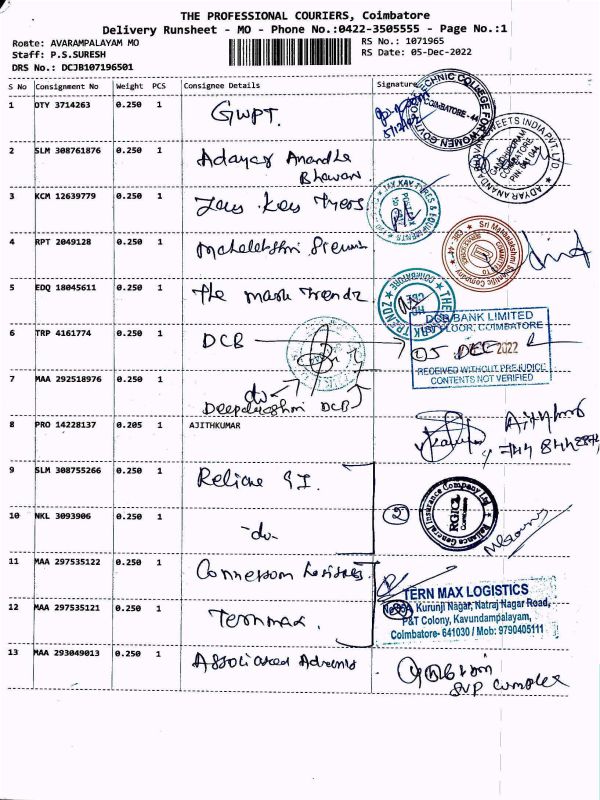 THE PROFESSIONAL COURIERS, Coimbatore
Delivery Runsheet - MO - Phone No.:0422-3505555 - Page No.:1
Route: AVARAMPALAYAM MO
Staff: P.S.SURESH
DRS No.: DCJB107196501
RS No.: 1071965
RS Date: 05-Dec-2022
S No Consignment No Weight PCS Consignee Details Signature
1 OTY 3714263 0.250 1 GWPT.
5/12/22
COIMBATORE - 44
2 SLM 308761876 0.250 1 Adayar Anandha
Bhavan
GANDHIPURAM
COIMBATORE
3 KCM 12639779 0.250 1 Jay Kay Tyers
JAY KAY TYRES &
4 RPT 2049128 0.250 1
Sri Mahalakshmi
5 EDQ 18045611 0.250 1 The mark Trendz
6 TRP 4161774 0.250 1 DCB
DCB BANK LIMITED
FLOOR, COIMBATORE
05 DEC 2022
RECEIVED WITHOUT PREJUDICE
CONTENTS NOT VERIFIED
7 MAA 292518976 0.250 1 do
DCB
8 PRO 14228137 0.205 1 AJITHKUMAR
9 SLM 308755266 0.250 1 GI.
Reliance General Insurance Company Ltd
RGICL
10 NKL 3093906 0.250 1 -do-
2
11 MAA 297535122 0.250 1
TERN MAX LOGISTICS
Kurunji Nagar, Natraj Nagar Road,
P&T Colony, Kavundampalayam,
Coimbatore- 641030 / Mob: 9790405111
12 MAA 297535121 0.250 1 Ternmax.
13 MAA 293049013 0.250 1 Associated
SVP complex